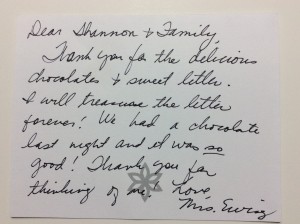 Dear Shannon & Family,
Thank you for the delicious
chocolates & sweet letter.
I will treasure the letter
forever! We had a chocolate
last night and it was so
good! Thank you for
thinking of me! Love
Mrs. Ewing